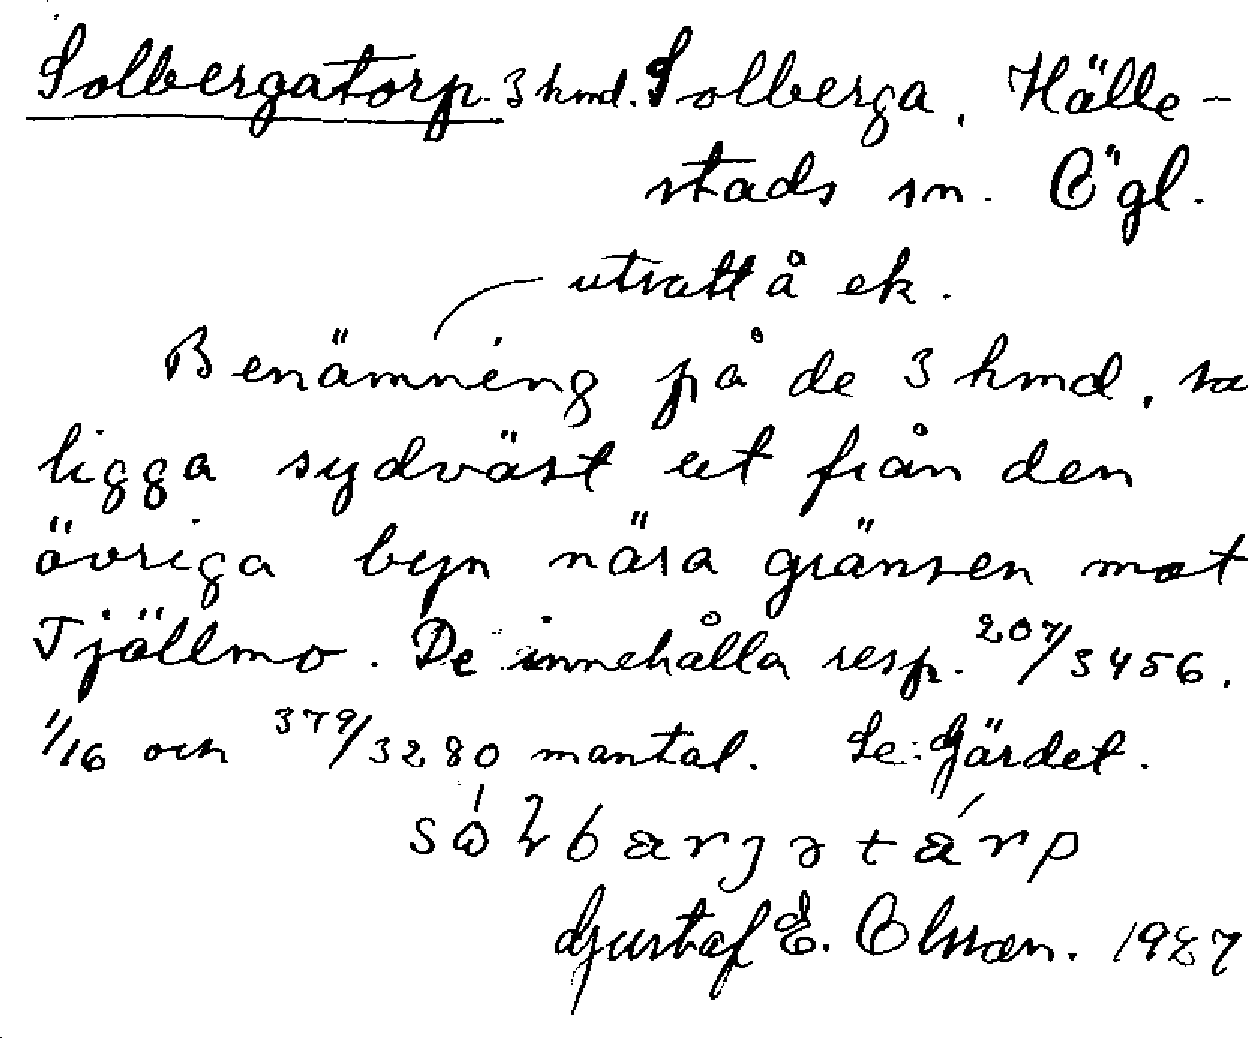 Solbergatorp. 3 hmd. Solberga, Hälle-
stads sn. Ögl.
utsatt å ek.
Benämning på de 3 hmd, sa
ligga sydväst ut från den
övriga byn nära gränsen mot
Tjällmo. De innehålla resp. 207/3456,
1/16 och 379/3280 mantal. Se: Gärdet.
Gustaf E. Olsson. 1927